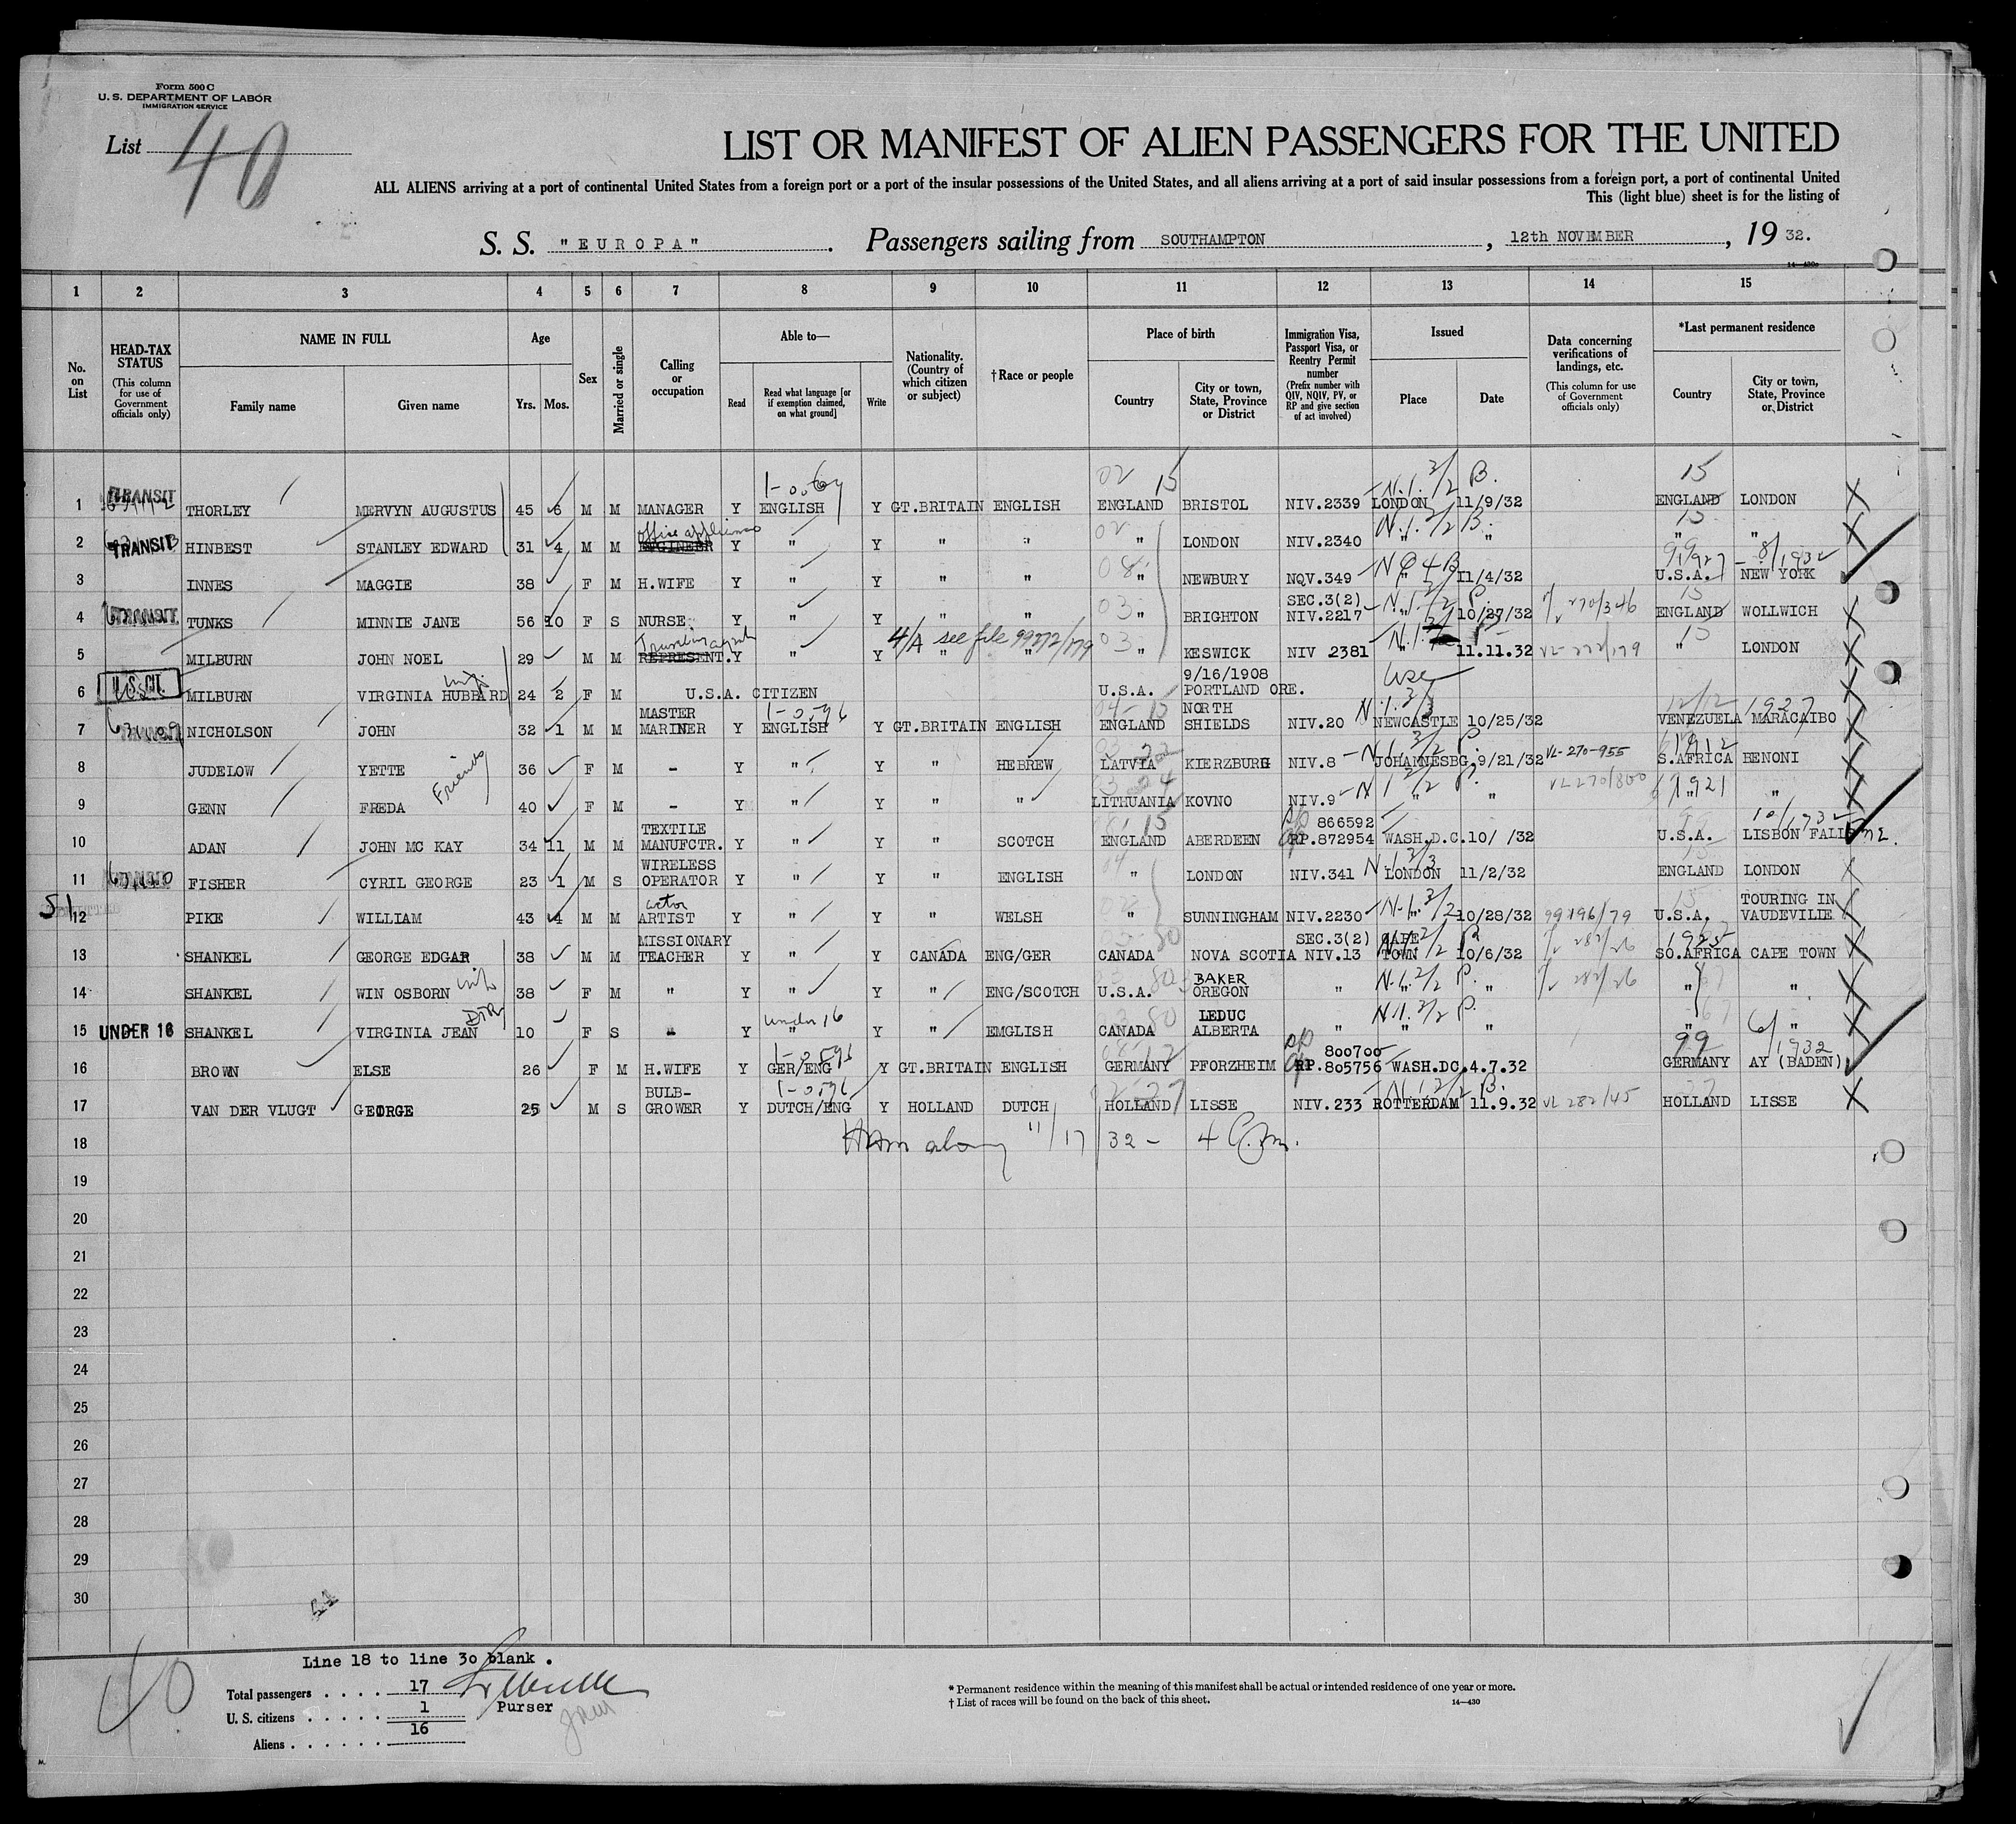 Form 500 C
U. S. DEPARTMENT OF LABOR
IMMIGRATION SERVICE
List 40
LIST OR MANIFEST OF ALIEN PASSENGERS FOR THE UNITED
ALL ALIENS arriving at a port of continental United States from a foreign port or a port of the insular possessions of the United States, and all aliens arriving at a port of said insular possessions from a foreign port, a port of continental United
This (light blue) sheet is for the listing of
S. S. "EUROPA". Passengers sailing from SOUTHAMPTON, 12th NOVEMBER, 19 32.
14—430
1 2 3 4 5 6 7 8 9 10 11 12 13 14 15
No. on List
HEAD-TAX STATUS (This column for use of Government officials only)
NAME IN FULL
Family name Given name
Age
Yrs. Mos.
Sex
Married or single
Calling or occupation
Able to—
Read Read what language [or if exemption claimed, on what ground] Write
Nationality. (Country of which citizen or subject)
†Race or people
Place of birth
Country City or town, State, Province or District
Immigration Visa, Passport Visa, or Reentry Permit number (Prefix number with QIV, NQIV, PV, or RP and give section of act involved)
Issued
Place Date
Data concerning verifications of landings, etc. (This column for use of Government officials only)
*Last permanent residence
Country City or town, State, Province or District
02 15 15
1 TRANSIT THORLEY MERVYN AUGUSTUS 45 6 M M MANAGER Y ENGLISH Y GT.BRITAIN ENGLISH ENGLAND BRISTOL NIV.2339 LONDON 11/9/32 ENGLAND LONDON
office appliance
2 TRANSIT HINBEST STANLEY EDWARD 31 4 M M ENGINEER Y " Y " " " LONDON NIV.2340 " " " "
3 INNES MAGGIE 38 F M H.WIFE Y " Y " " " NEWBURY NQV.349 " 11/4/32 U.S.A. NEW YORK
SEC.3(2)
4 TRANSIT TUNKS MINNIE JANE 56 10 F S NURSE Y " Y " " " BRIGHTON NIV.2217 " 10/27/32 270/346 ENGLAND WOLLWICH
4/A see file 99272/179
5 MILBURN JOHN NOEL 29 M M REPRESENT. Y " Y " " " KESWICK NIV 2381 " 11.11.32 VL-272/179 " LONDON
9/16/1908
6 U.S.CIT. MILBURN VIRGINIA HUBBARD 24 2 F M U.S.A. CITIZEN U.S.A. PORTLAND ORE.
MASTER NORTH
7 NICHOLSON JOHN 32 1 M M MARINER Y ENGLISH Y GT.BRITAIN ENGLISH ENGLAND SHIELDS NIV.20 NEWCASTLE 10/25/32 VENEZUELA MARACAIBO
8 JUDELOW YETTE Friends 36 F M - Y " Y " HEBREW LATVIA KIERZBURG NIV.8 JOHANNESBG. 9/21/32 VL-270-955 S.AFRICA BENONI
9 GENN FREDA 40 F M - Y " Y " " LITHUANIA KOVNO NIV.9 " " VL 270/800 " "
TEXTILE 866592
10 ADAN JOHN MC KAY 34 11 M M MANUFCTR. Y " Y " SCOTCH ENGLAND ABERDEEN RP.872954 WASH.D.C. 10/ /32 U.S.A. LISBON FALLS
WIRELESS
11 FISHER CYRIL GEORGE 23 1 M S OPERATOR Y " Y " ENGLISH " LONDON NIV.341 LONDON 11/2/32 ENGLAND LONDON
51 actor TOURING IN
12 PIKE WILLIAM 43 4 M M ARTIST Y " Y " WELSH " SUNNINGHAM NIV.2230 " 10/28/32 99196/79 U.S.A. VAUDEVILLE
MISSIONARY SEC.3(2) CAPE 1925
13 SHANKEL GEORGE EDGAR 38 M M TEACHER Y " Y CANADA ENG/GER CANADA NOVA SCOTIA NIV.13 TOWN 10/6/32 282/26 SO.AFRICA CAPE TOWN
BAKER
14 SHANKEL WIN OSBORN 38 F M " Y " Y " ENG/SCOTCH U.S.A. OREGON " " " 282/26 " "
under 16 LEDUC
15 UNDER 16 SHANKEL VIRGINIA JEAN 10 F S - Y " Y " EMGLISH CANADA ALBERTA " " " " "
800700 99 1932
16 BROWN ELSE 26 F M H.WIFE Y GER/ENG Y GT.BRITAIN ENGLISH GERMANY PFORZHEIM RP.805756 WASH.DC. 4.7.32 GERMANY AY (BADEN)
BULB-
17 VAN DER VLUGT GEORGE 25 M S GROWER Y DUTCH/ENG Y HOLLAND DUTCH HOLLAND LISSE NIV.233 ROTTERDAM 11.9.32 VL 282/45 HOLLAND LISSE
18 11/17 32 -
19
20
21
22
23
24
25
26
27
28
29
30
Line 18 to line 30 blank .
Total passengers . . . . 17
U. S. citizens . . . . . 1
Purser
Aliens . . . . . . 16
40
* Permanent residence within the meaning of this manifest shall be actual or intended residence of one year or more.
† List of races will be found on the back of this sheet. 14—430